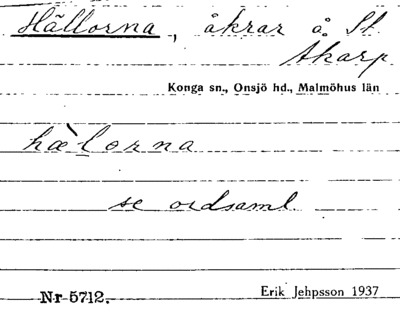 Hällorna, åkrar å St.
Åkarp
Konga sn., Onsjö hd., Malmöhus län
hæ̀lorna
se ordsaml.
Nr 5712.
Erik Jehpsson 1937